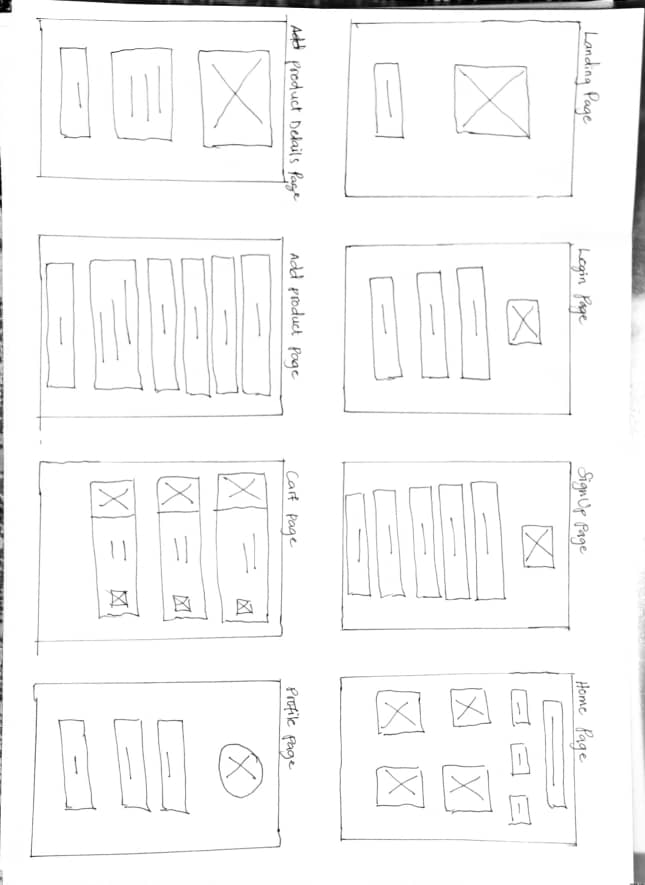 Landing Page
Login Page
SignUp Page
Home Page
Add Product Details Page
Add product Page
Cart page
Profile page